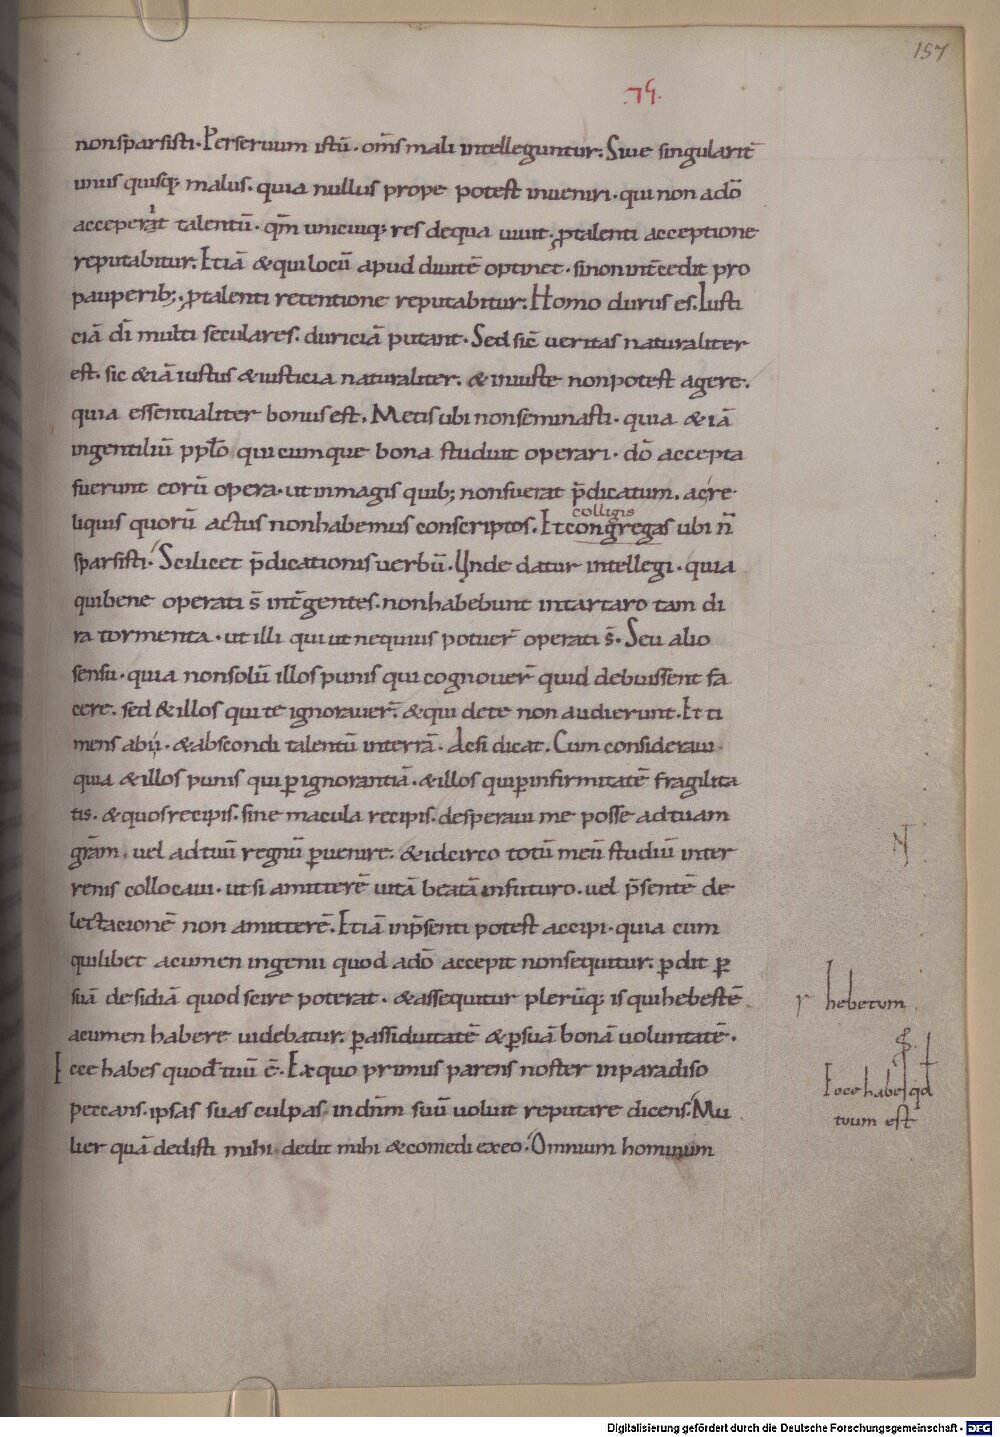 157
non sparsisti· Per seruum istū· om̄s mali intelleguntur. Siue singularit̄
unus quisq; malus. quia nullus prope potest inueniri· qui non a dō
acceperit talentū· qm̄ unicuiq; res de qua uiuit· ꝓ talenti acceptione
reputabitur. Etiā & qui locū apud diuitē optinet· si non int̄cedit pro
pauperib;· ꝓ talenti retentione reputabitur. Homo durus es. Iusti
ciā dī multi seculares· duriciā putant· Sed sic̄ ueritas naturaliter
est· sic &iā iustus & iusticia naturaliter· & iniuste non potest agere·
quia essentialiter bonus est. Metis ubi non seminasti· quia &iā
in gentiliū pplō quicumque bona studuit operari· dō accepta
fuerunt eorū opera· ut in magis quib; non fuerat p̄dicatum· ac re
liquis quorū actus non habemus conscriptos. Et congregas ubi n̄
colligis
sparsisti· Scilicet p̄dicationis uerbū. Unde datur intellegi· quia
qui bene operati s̄ int̄ gentes· non habebunt in tartaro tam di
ra tormenta· ut illi qui ut nequius potuer̄ operati s̄. Seu alio
sensu· quia non solū illos punis qui cognouer̄ quid debuissent fa
cere· sed & illos qui te ignorauer̄· & qui de te non audierunt. Et ti
mens abii· & abscondi talentū in terrā· Ac si dicat. Cum consideraui
quia & illos punis qui ꝑ ignorantiā· & illos qui ꝑ infirmitatē fragilita
tis· & quos recipis· sine macula recipis· desperaui me posse ad tuam
grām· uel ad tuū regnū ꝑuenire· & idcirco totū meū studiū in ter
renis collocaui· ut si amitterē uitā beatā in futuro· uel p̄sentē de
lectacionē non amitterē. Etiā in p̄senti potest accipi· quia cum
quilibet acumen ingenii quod a dō accepit non sequitur· ꝑdit ꝑ
suā desidiā quod scire poterat· & assequitur plerūq; is qui hebestē
hebetum
acumen habere uidebatur· ꝑ assiduitatē & ꝑ suā bonā uoluntatē·
Ecce habes quod tuū ē. Ex quo primus parens noster in paradiso
Ecce habes qd
tuum est
peccans· ipsas suas culpas in dnm̄ suū uoluit reputare dicens. Mu
lier quā dedisti mihi dedit mihi & comedi ex eo· Omnium hominum
Digitalisierung gefördert durch die Deutsche Forschungsgemeinschaft - DFG